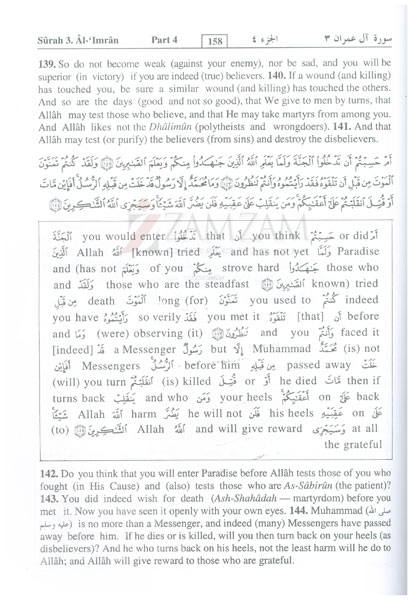 Sûrah 3. Âl-'Imrân Part 4 158 الجزء ٤ سورة آل عمران ٣
139. So do not become weak (against your enemy), nor be sad, and you will be
superior (in victory) if you are indeed (true) believers. 140. If a wound (and killing)
has touched you, be sure a similar wound (and killing) has touched the others.
And so are the days (good and not so good), that We give to men by turns, that
Allâh may test those who believe, and that He may take martyrs from among you.
And Allâh likes not the Dhâlimûn (polytheists and wrongdoers). 141. And that
Allâh may test (or purify) the believers (from sins) and destroy the disbelievers.
أَمْ حَسِبْتُمْ أَن تَدْخُلُوا الْجَنَّةَ وَلَمَّا يَعْلَمِ اللَّهُ الَّذِينَ جَاهَدُوا مِنكُمْ وَيَعْلَمَ الصَّابِرِينَ ﴿١٤٢﴾ وَلَقَدْ كُنتُمْ تَمَنَّوْنَ
الْمَوْتَ مِن قَبْلِ أَن تَلْقَوْهُ فَقَدْ رَأَيْتُمُوهُ وَأَنتُمْ تَنظُرُونَ ﴿١٤٣﴾ وَمَا مُحَمَّدٌ إِلَّا رَسُولٌ قَدْ خَلَتْ مِن قَبْلِهِ الرُّسُلُ أَفَإِيْن مَّاتَ
أَوْ قُتِلَ انقَلَبْتُمْ عَلَىٰ أَعْقَابِكُمْ وَمَن يَنقَلِبْ عَلَىٰ عَقِبَيْهِ فَلَن يَضُرَّ اللَّهَ شَيْئًا وَسَيَجْزِي اللَّهُ الشَّاكِرِينَ ﴿١٤٤﴾
ZAMZAM
الْجَنَّةَ you would enter تَدْخُلُوا that أَن you think حَسِبْتُمْ or did أَمْ
الَّذِينَ Allah اللَّهُ [known] tried يَعْلَمِ and has not yet وَلَمَّا Paradise
and (has not وَيَعْلَمَ of you مِنكُمْ strove hard جَاهَدُوا those who
and وَلَقَدْ those who are the steadfast الصَّابِرِينَ known) tried
مِن قَبْلِ death الْمَوْتَ long (for) تَمَنَّوْنَ you used to كُنتُمْ indeed
you have رَأَيْتُمُوهُ so verily فَقَدْ you met it تَلْقَوْهُ [that] أَن before
and وَمَا (were) observing (it) تَنظُرُونَ and you وَأَنتُمْ faced it
[indeed] قَدْ a Messenger رَسُولٌ but إِلَّا Muhammad مُحَمَّدٌ (is) not
أَفَإِيْن Messengers الرُّسُلُ before him مِن قَبْلِهِ passed away خَلَتْ
(will) you turn انقَلَبْتُمْ (is) killed قُتِلَ or أَوْ he died مَّاتَ then if
turns back يَنقَلِبْ and who وَمَن your heels أَعْقَابِكُمْ on عَلَىٰ back
شَيْئًا Allah اللَّهَ harm يَضُرَّ he will not فَلَن his heels عَقِبَيْهِ on عَلَىٰ
(to) الشَّاكِرِينَ Allah اللَّهُ and will give reward وَسَيَجْزِي at all
the grateful
142. Do you think that you will enter Paradise before Allâh tests those of you who
fought (in His Cause) and (also) tests those who are As-Sâbirûn (the patient)?
143. You did indeed wish for death (Ash-Shahâdah — martyrdom) before you
met it. Now you have seen it openly with your own eyes. 144. Muhammad (صلى الله
عليه وسلم) is no more than a Messenger, and indeed (many) Messengers have passed
away before him. If he dies or is killed, will you then turn back on your heels (as
disbelievers)? And he who turns back on his heels, not the least harm will he do to
Allâh; and Allâh will give reward to those who are grateful.